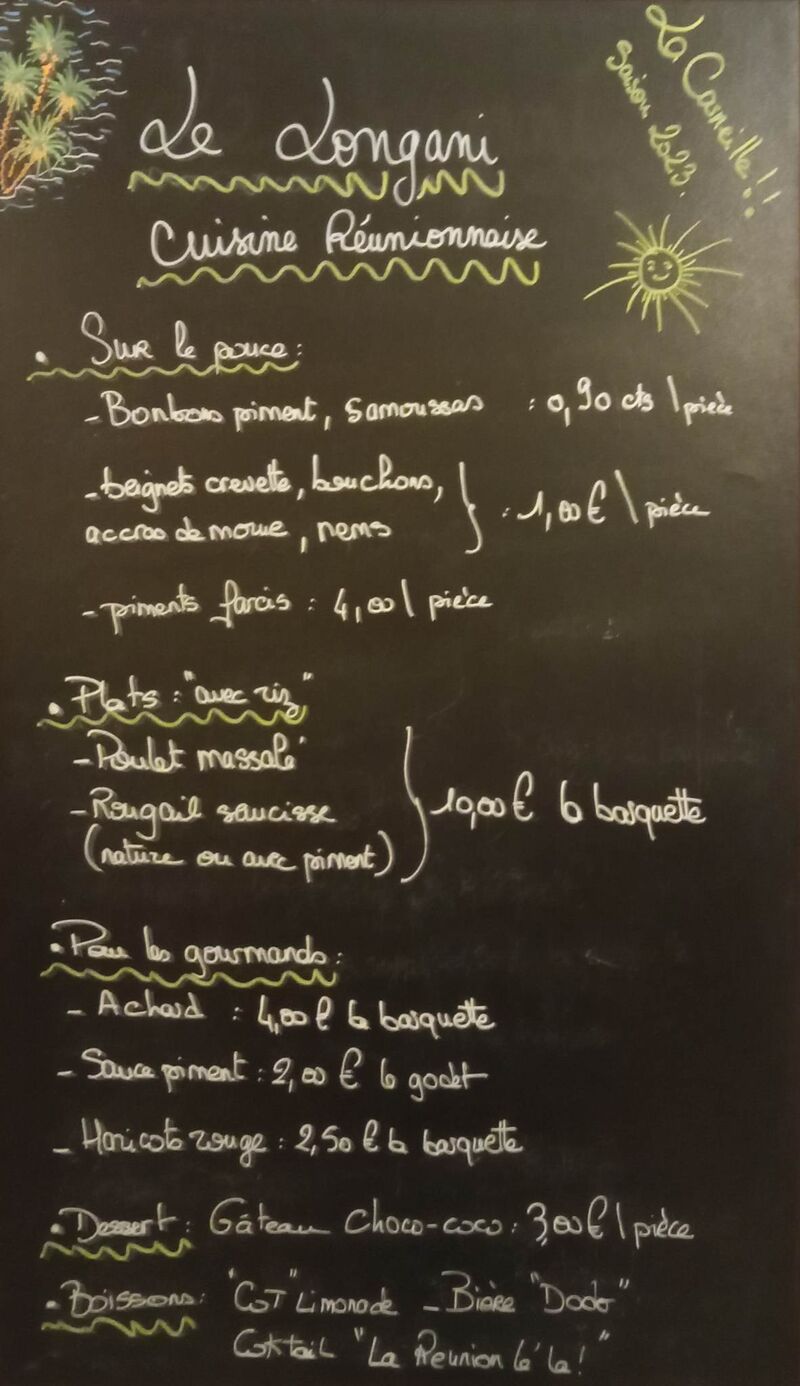 Le Longani
La Corneille!!
Saison 2023.
Cuisine Réunionnaise
• Sur le pouce :
- Bonbons piment, samoussas : 0,90 cts \ pièce
- beignets crevette, bouchons,
accras de morue, nems : 1,00 € \ pièce
- piments farcis : 4,00 \ pièce
• Plats : "avec riz"
- Poulet massalé
- Rougail saucisse
(nature ou avec piment) 10,00 € la barquette
• Pour les gourmands :
- Achard : 4,00 € la barquette
- Sauce piment : 2,00 € le godet
- Haricots rouge : 2,50 € la barquette
• Dessert : Gâteau Choco-coco : 3,00 € \ pièce
• Boissons : "Cot" Limonade - Bière "Dodo"
Coktail "La Réunion lé la !"